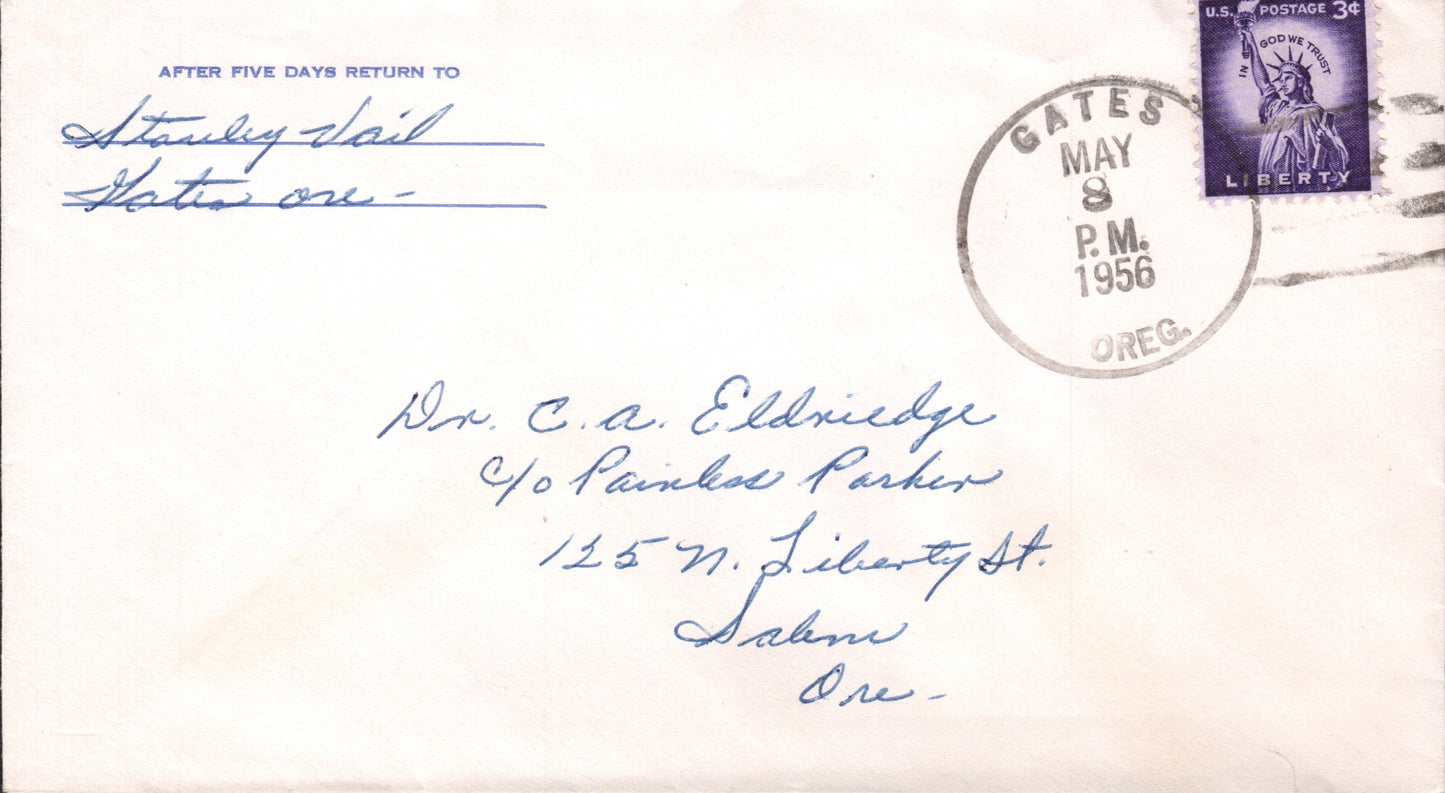 AFTER FIVE DAYS RETURN TO
Stanley Vail
Gates ore -
U.S. POSTAGE 3¢
IN GOD WE TRUST
LIBERTY
GATES
MAY
8
P.M.
1956
OREG.
Dr. C. A. Eldriedge
c/o Painless Parker
125 N. Liberty St.
Salem
Ore -